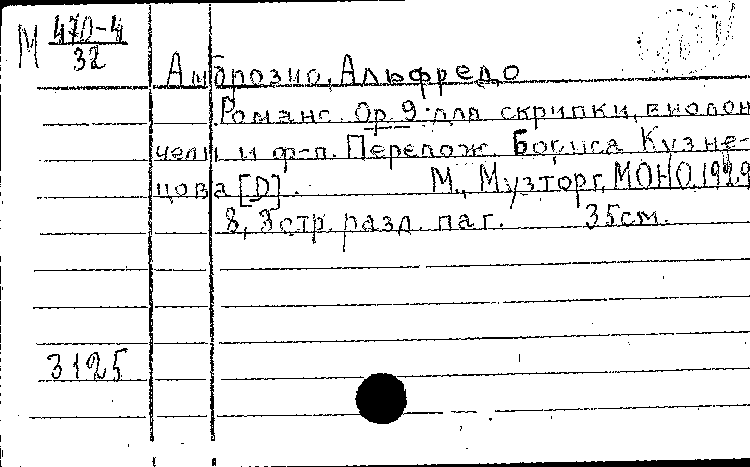 М 470-4
32
Амброзио, Альфредо
Романс. Op. 9 для скрипки, виолон
чели и ф-п. Перелож. Бориса Кузне-
цова [D]. М., Музторг, МОНО, 1929
8, 3 стр. разд. паг. 35см.
3125